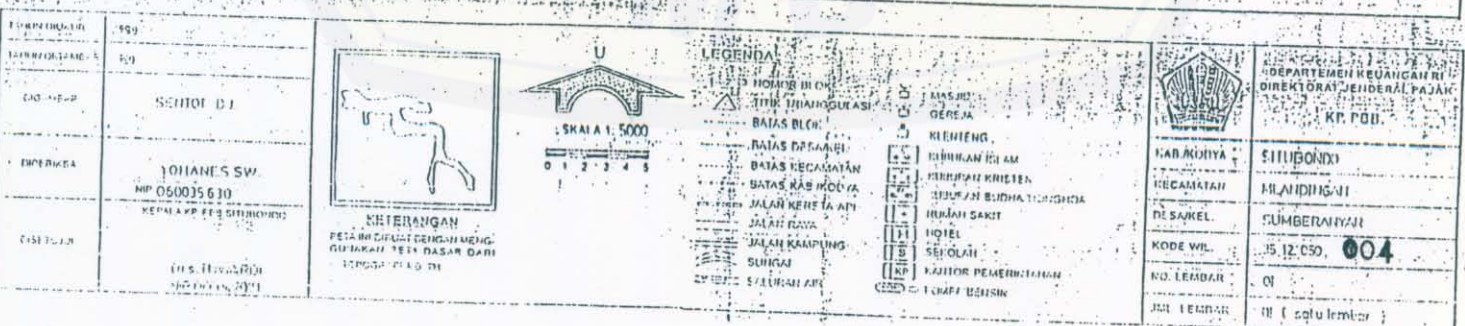 SENTOT DJ.
DIPERIKSA
YOHANES SW.
NIP 060035630
KEPALA KP PBB SITUBONDO
U
SKALA 1: 5000
0 1 2 3 4 5
KETERANGAN
PETA INI DIBUAT DENGAN MENG-
GUNAKAN PETA DASAR DARI
LEGENDA
NOMOR BLOK
TITIK TRIANGGULASI
BATAS BLOK
BATAS DESA/KEL
BATAS KECAMATAN
BATAS KAB/KODYA
JALAN KERETA API
JALAN RAYA
JALAN KAMPUNG
SUNGAI
SALURAN AIR
MASJID
GEREJA
KLENTENG
KUBURAN ISLAM
KUBURAN KRISTEN
KUBURAN BUDHA TIONGHOA
RUMAH SAKIT
HOTEL
S SEKOLAH
KP KANTOR PEMERINTAHAN
POMPA BENSIN
DEPARTEMEN KEUANGAN RI
DIREKTORAT JENDERAL PAJAK
KP. PBB.
KAB/KODYA SITUBONDO
KECAMATAN MLANDINGAN
DESA/KEL. SUMBERANYAR
KODE WIL. 35.12.050. 004
NO. LEMBAR 01
JML LEMBAR 01 ( satu lembar )